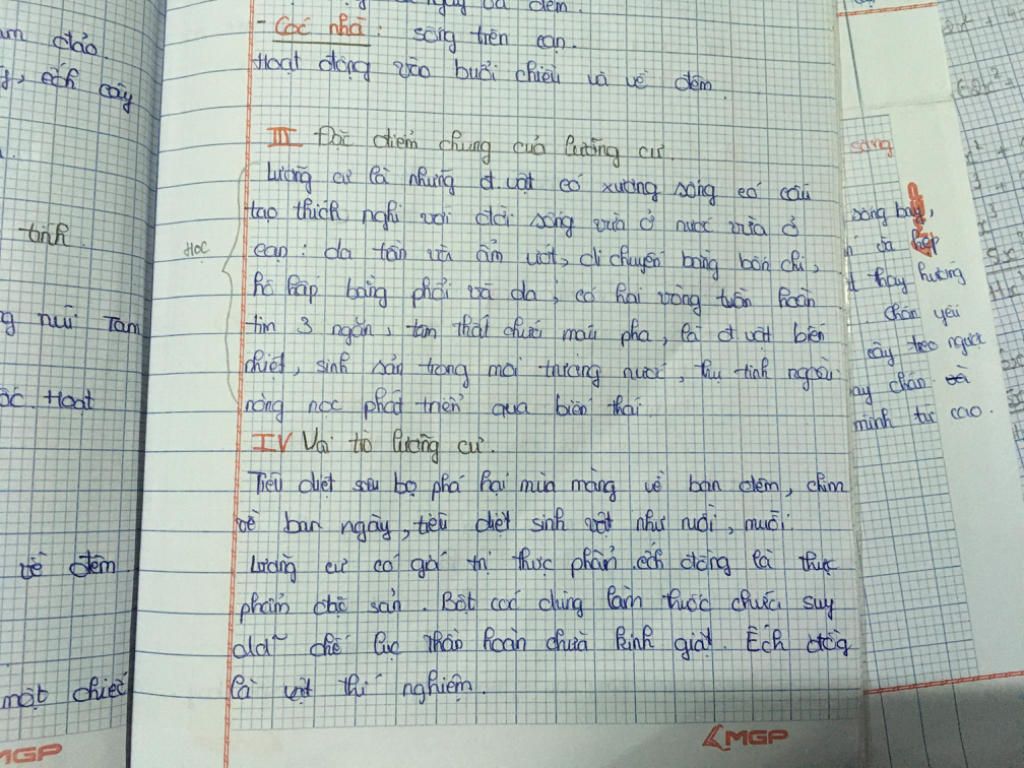 - Cóc nhà: sống trên cạn.
Hoạt động vào buổi chiều và về đêm.
III Đặc điểm chung của lưỡng cư.
Lưỡng cư là những đ vật có xương sống có cấu
tạo thích nghi với đời sống vừa ở nước vừa ở
cạn: da trần và ẩm ướt, di chuyển bằng bốn chi,
HỌC
hô hấp bằng phổi và da, có hai vòng tuần hoàn
tim 3 ngăn, tâm thất chứa máu pha, là đ vật biến
nhiệt, sinh sản trong môi trường nước, thụ tinh ngoài
nòng nọc phát triển qua biến thái.
IV Vai trò lưỡng cư.
Tiêu diệt sâu bọ phá hại mùa màng về ban đêm, chim
về ban ngày, tiêu diệt sinh vật như ruồi, muỗi.
Lưỡng cư có giá trị thực phẩm. ếch đồng là thực
phẩm đặc sản. Bột cóc dùng làm thuốc chữa suy
dd chế lục thần hoàn chữa kinh giật. Ếch đồng
là vật thí nghiệm.
MGP
đảo
ếch cây
tính
núi Tam
Hoạt
về đêm
một chiếc
MGP
sống
sống bay,
da hẹp
thay hướng
chân yếu
cây treo ngược
chân
mình từ cao.